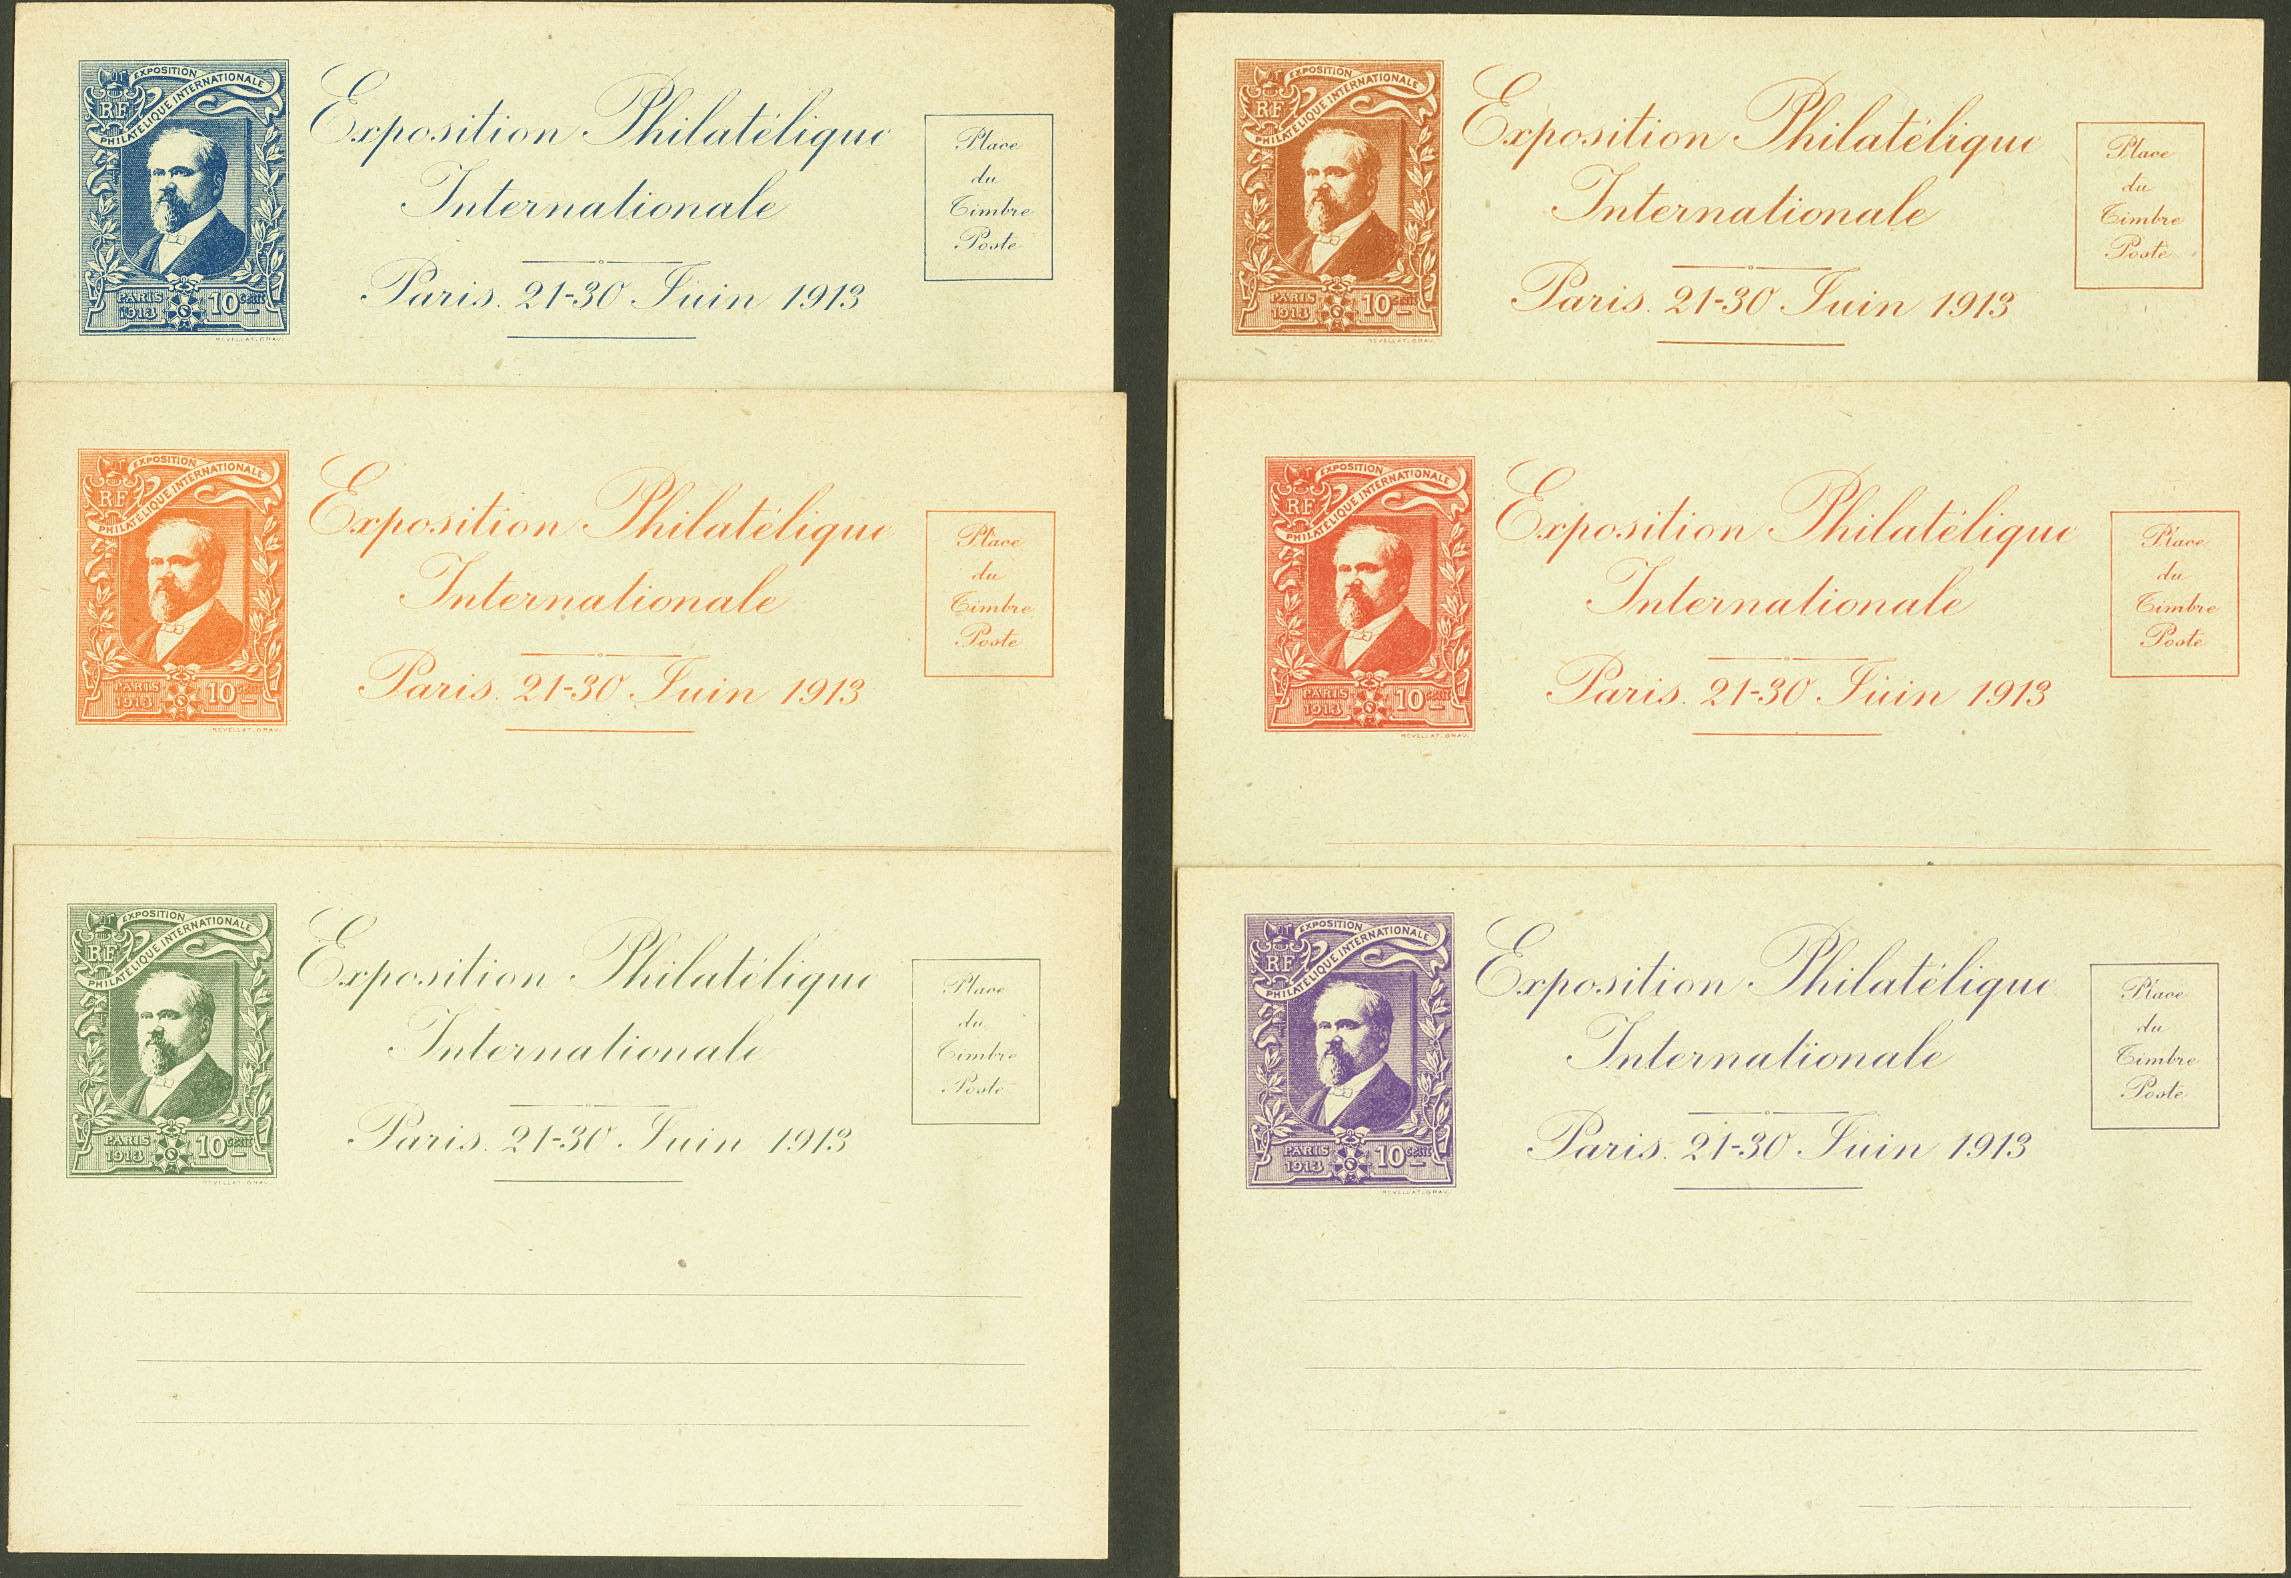 EXPOSITION
PHILATÉLIQUE INTERNATIONALE
RF
PARIS
1913
10 cent
REVELLAT. GRAV.
Exposition Philatélique
Internationale
Paris. 21-30 Juin 1913
Place
du
Timbre
Poste
EXPOSITION
PHILATÉLIQUE INTERNATIONALE
RF
PARIS
1913
10 cent
REVELLAT. GRAV.
Exposition Philatélique
Internationale
Paris. 21-30 Juin 1913
Place
du
Timbre
Poste
EXPOSITION
PHILATÉLIQUE INTERNATIONALE
RF
PARIS
1913
10 cent
REVELLAT. GRAV.
Exposition Philatélique
Internationale
Paris. 21-30 Juin 1913
Place
du
Timbre
Poste
EXPOSITION
PHILATÉLIQUE INTERNATIONALE
RF
PARIS
1913
10 cent
REVELLAT. GRAV.
Exposition Philatélique
Internationale
Paris. 21-30 Juin 1913
Place
du
Timbre
Poste
EXPOSITION
PHILATÉLIQUE INTERNATIONALE
RF
PARIS
1913
10 cent
REVELLAT. GRAV.
Exposition Philatélique
Internationale
Paris. 21-30 Juin 1913
Place
du
Timbre
Poste
EXPOSITION
PHILATÉLIQUE INTERNATIONALE
RF
PARIS
1913
10 cent
REVELLAT. GRAV.
Exposition Philatélique
Internationale
Paris. 21-30 Juin 1913
Place
du
Timbre
Poste